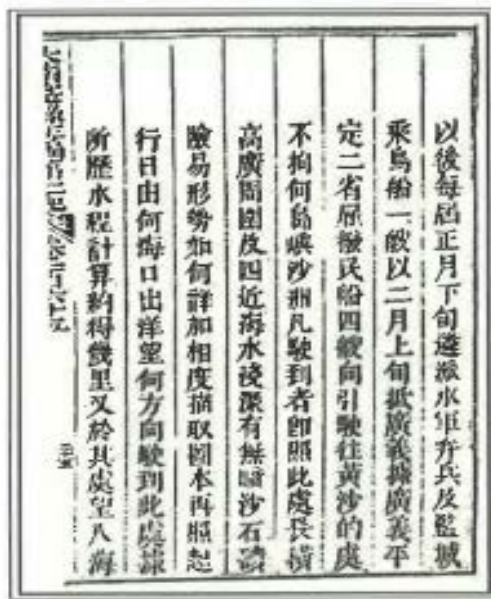 以後每屆正月下旬遴派水軍弁兵及監城
乘烏船一艘以二月上旬抵廣義據廣義平
定二省雇撥民船四艘向引駛往黃沙的處
不拘何島嶼沙洲凡駛到者即照此處長橫
高廣周圍及四近海水淺深有無暗沙石磧
險易形勢如何詳加相度描取圖本再照起
行日由何海口出洋望何方向駛到此處據
所歷水程計算約得幾里又於其處望入海
大南寔錄正編第二紀 百六十五